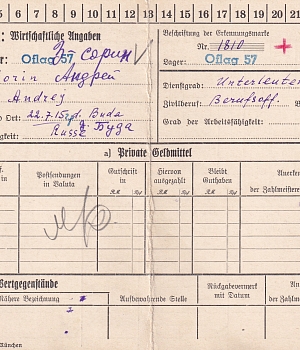 5 6 7 8 9 10 11 12 13 14 15 16 17 18 19 20 21
: Wirtschaftliche Angaben
Beschriftung der Erkennungsmarke
Зорин
Nr. 1810 +
er: Oflag 57
Lager: Oflag 57
orin Андрей
Dienstgrad: Unterleuten
Andrej
Zivilberuf: Berufsoff.
Ort: 22.7.15 Buda
Grad der Arbeitsfähigkeit:
Russe Буда
igkeit:
a) Private Geldmittel
Postsendungen in Valuta
Gutschrift in
RM Rpf
Hiervon ausgezahlt
RM Rpf
Bleibt Guthaben
RM Rpf
Anerken
der Zahlmeistere
Wertgegenstände
Nähere Bezeichnung
Aufbewahrende Stelle
Rückgabevermerk mit Datum
An
der Zahlm
München